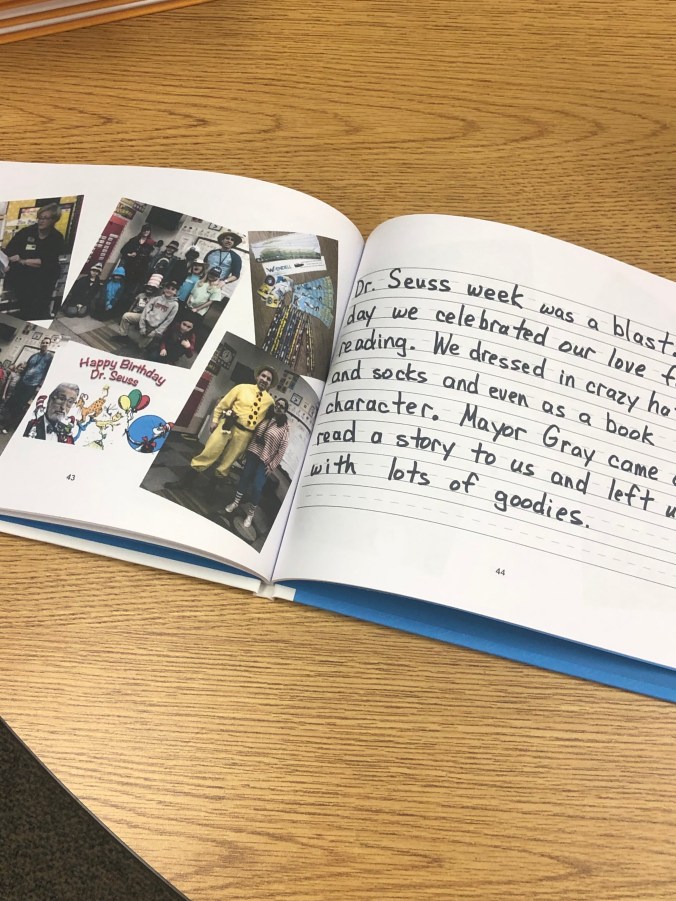 WENDELL
Happy Birthday
Dr. Seuss
43
Dr. Seuss week was a blast.
day we celebrated our love
reading. We dressed in crazy
and socks and even as a book
character. Mayor Gray came
read a story to us and left
with lots of goodies.
44